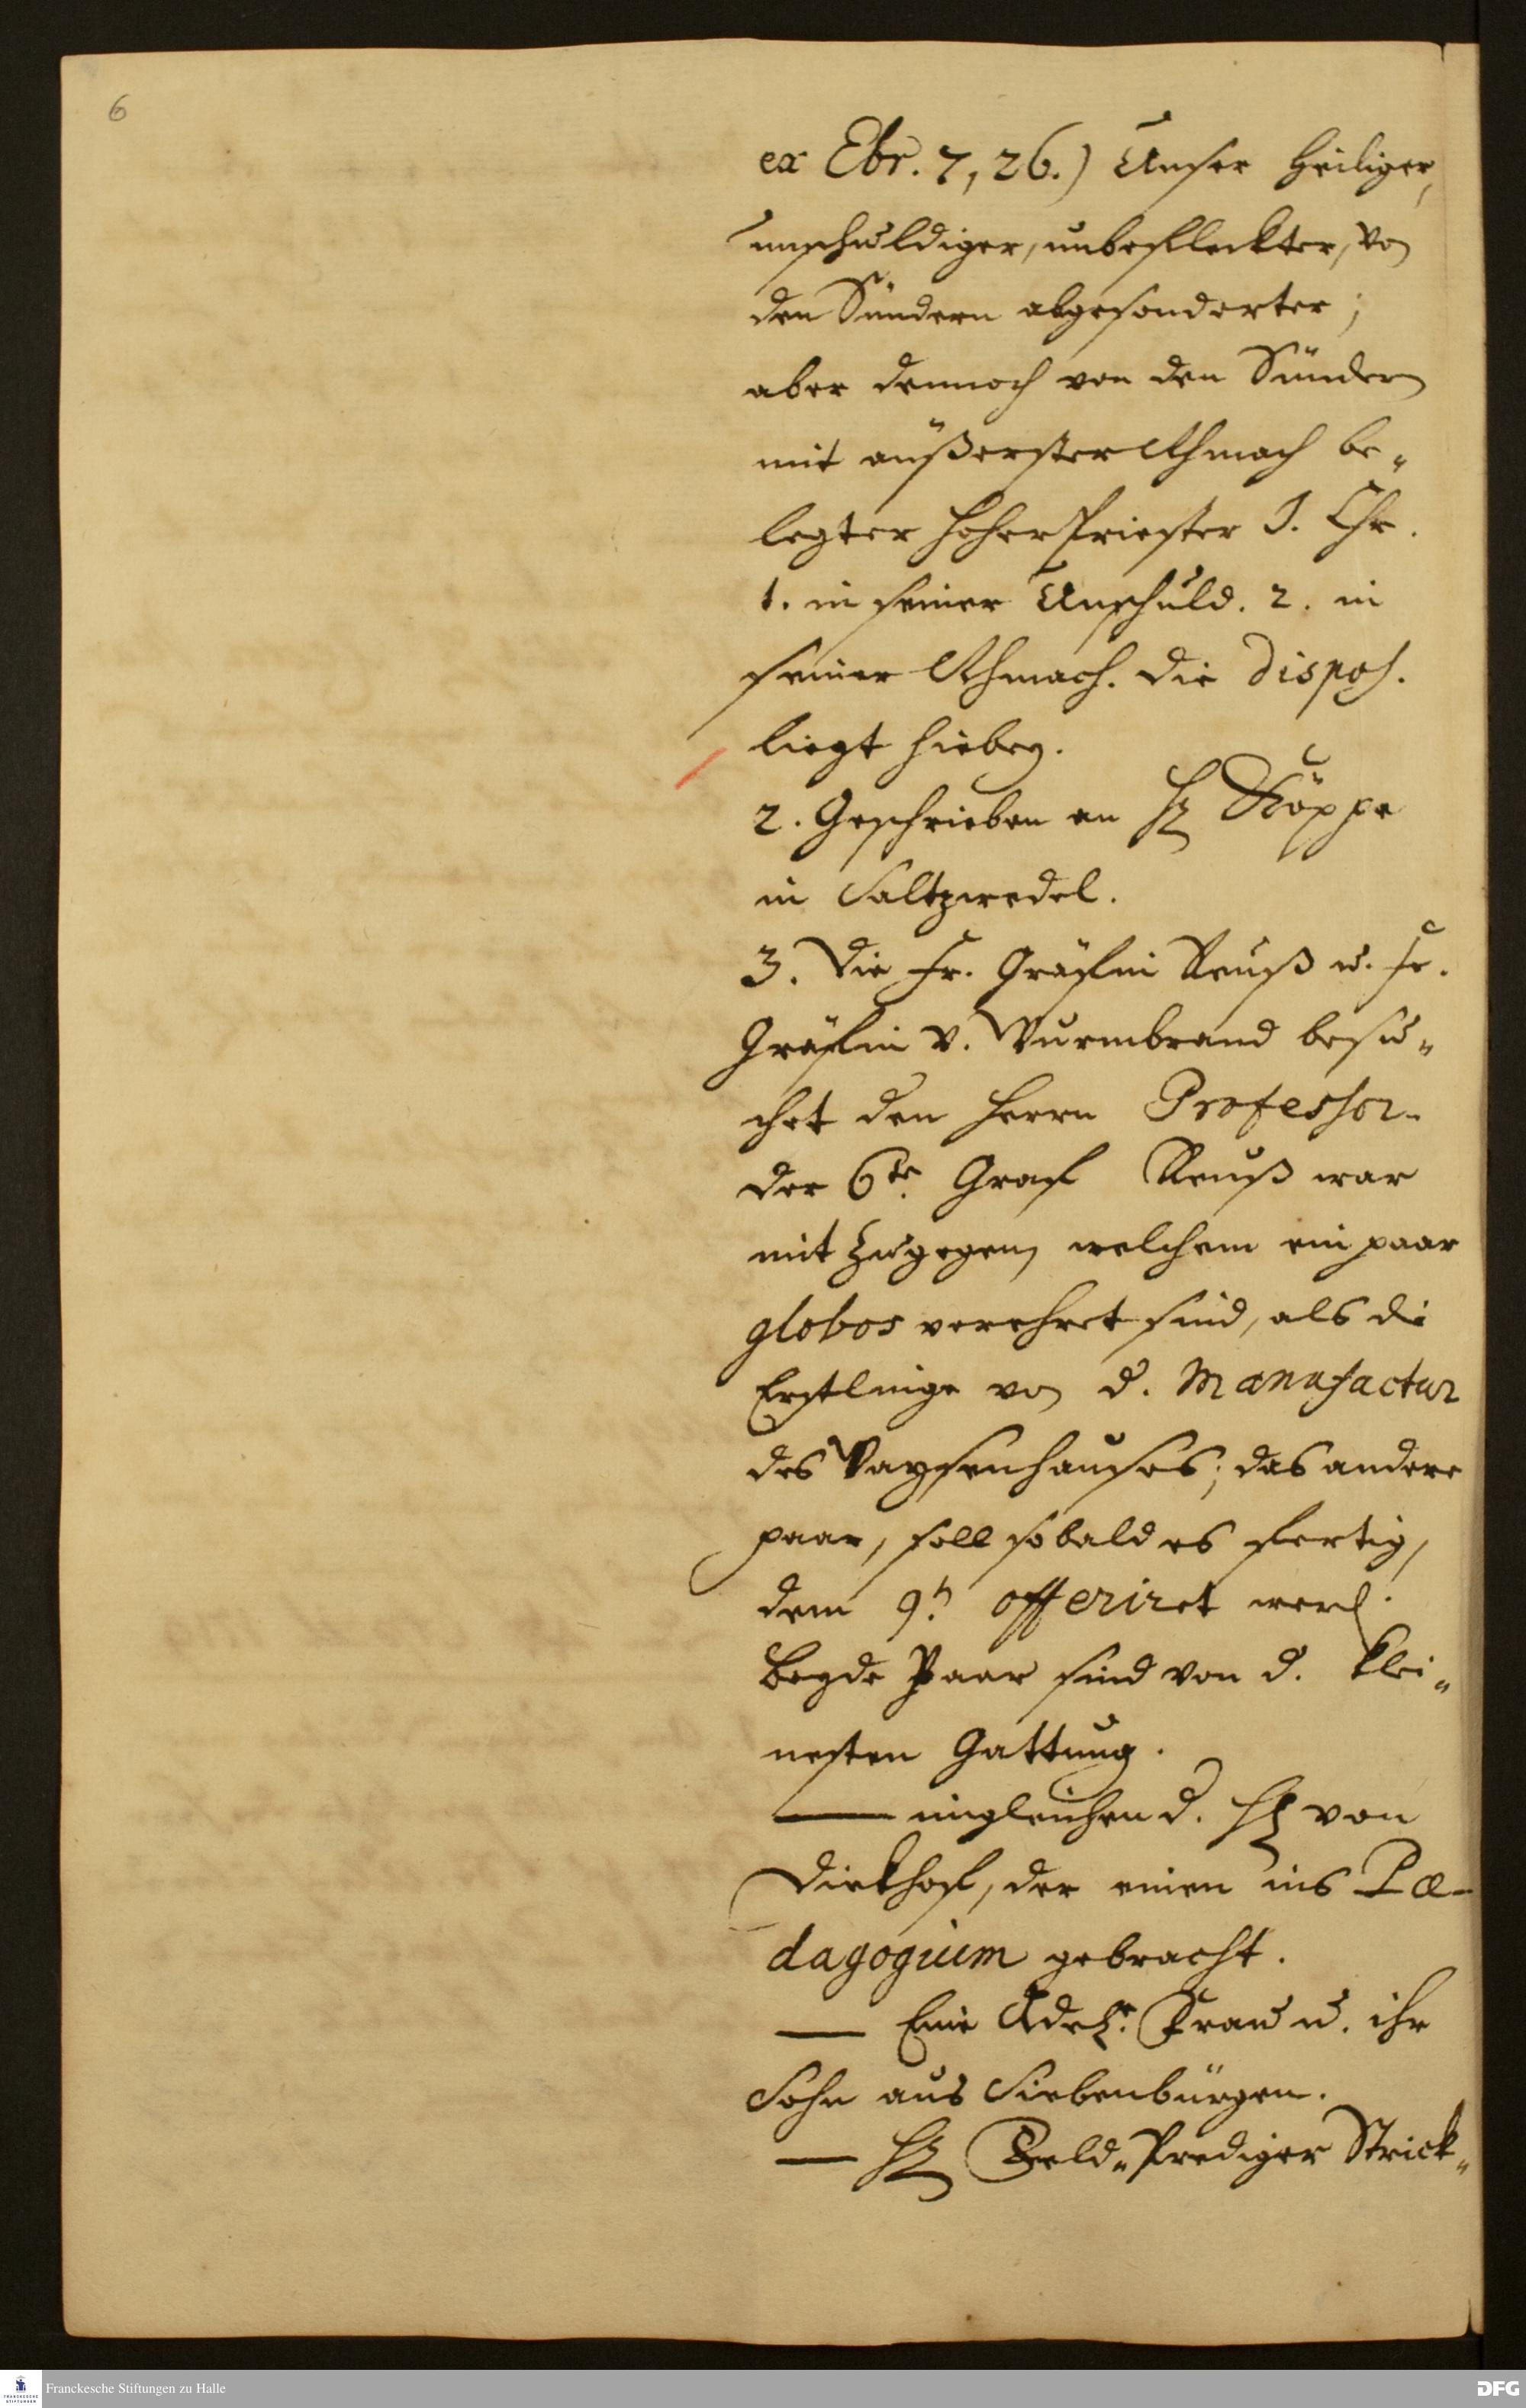 6
ex Ebr. 7, 26.) Unser heiliger,
unschuldiger, unbefleckter, von
den Sündern abgesonderter;
aber dennoch von den Sündern
mit äußerster Schmach be„
legter hoher Priester J. Chr.
1. in seiner Unschuld. 2. in
seiner Schmach. die dispos.
liegt hiebey.
2. Geschrieben an H Köppe
in Saltzwedel.
3. Die Fr. Gräfin Reuß u. Fr.
Gräfin v. Wurmbrand besu„
chet den Herrn Professor.
der 6te. Graf Reuß war
mit zugegen, welchem ein paar
globos verehret sind, als die
Erstlinge von d. Manufactur
des Waysenhauses; das andere
paar, soll so bald es fertig,
dem 9n. offeriret werd.
Beyde Paar sind von d. klei„
nesten Gattung.
— imgleichen d. H von
Dieckhof, der einen ins Pæ-
dagogium gebracht.
— Eine Adel. Frau u. ihr
Sohn aus Siebenbürgen.
— H Feld„Prediger Strick„
Franckesche Stiftungen zu Halle
DFG